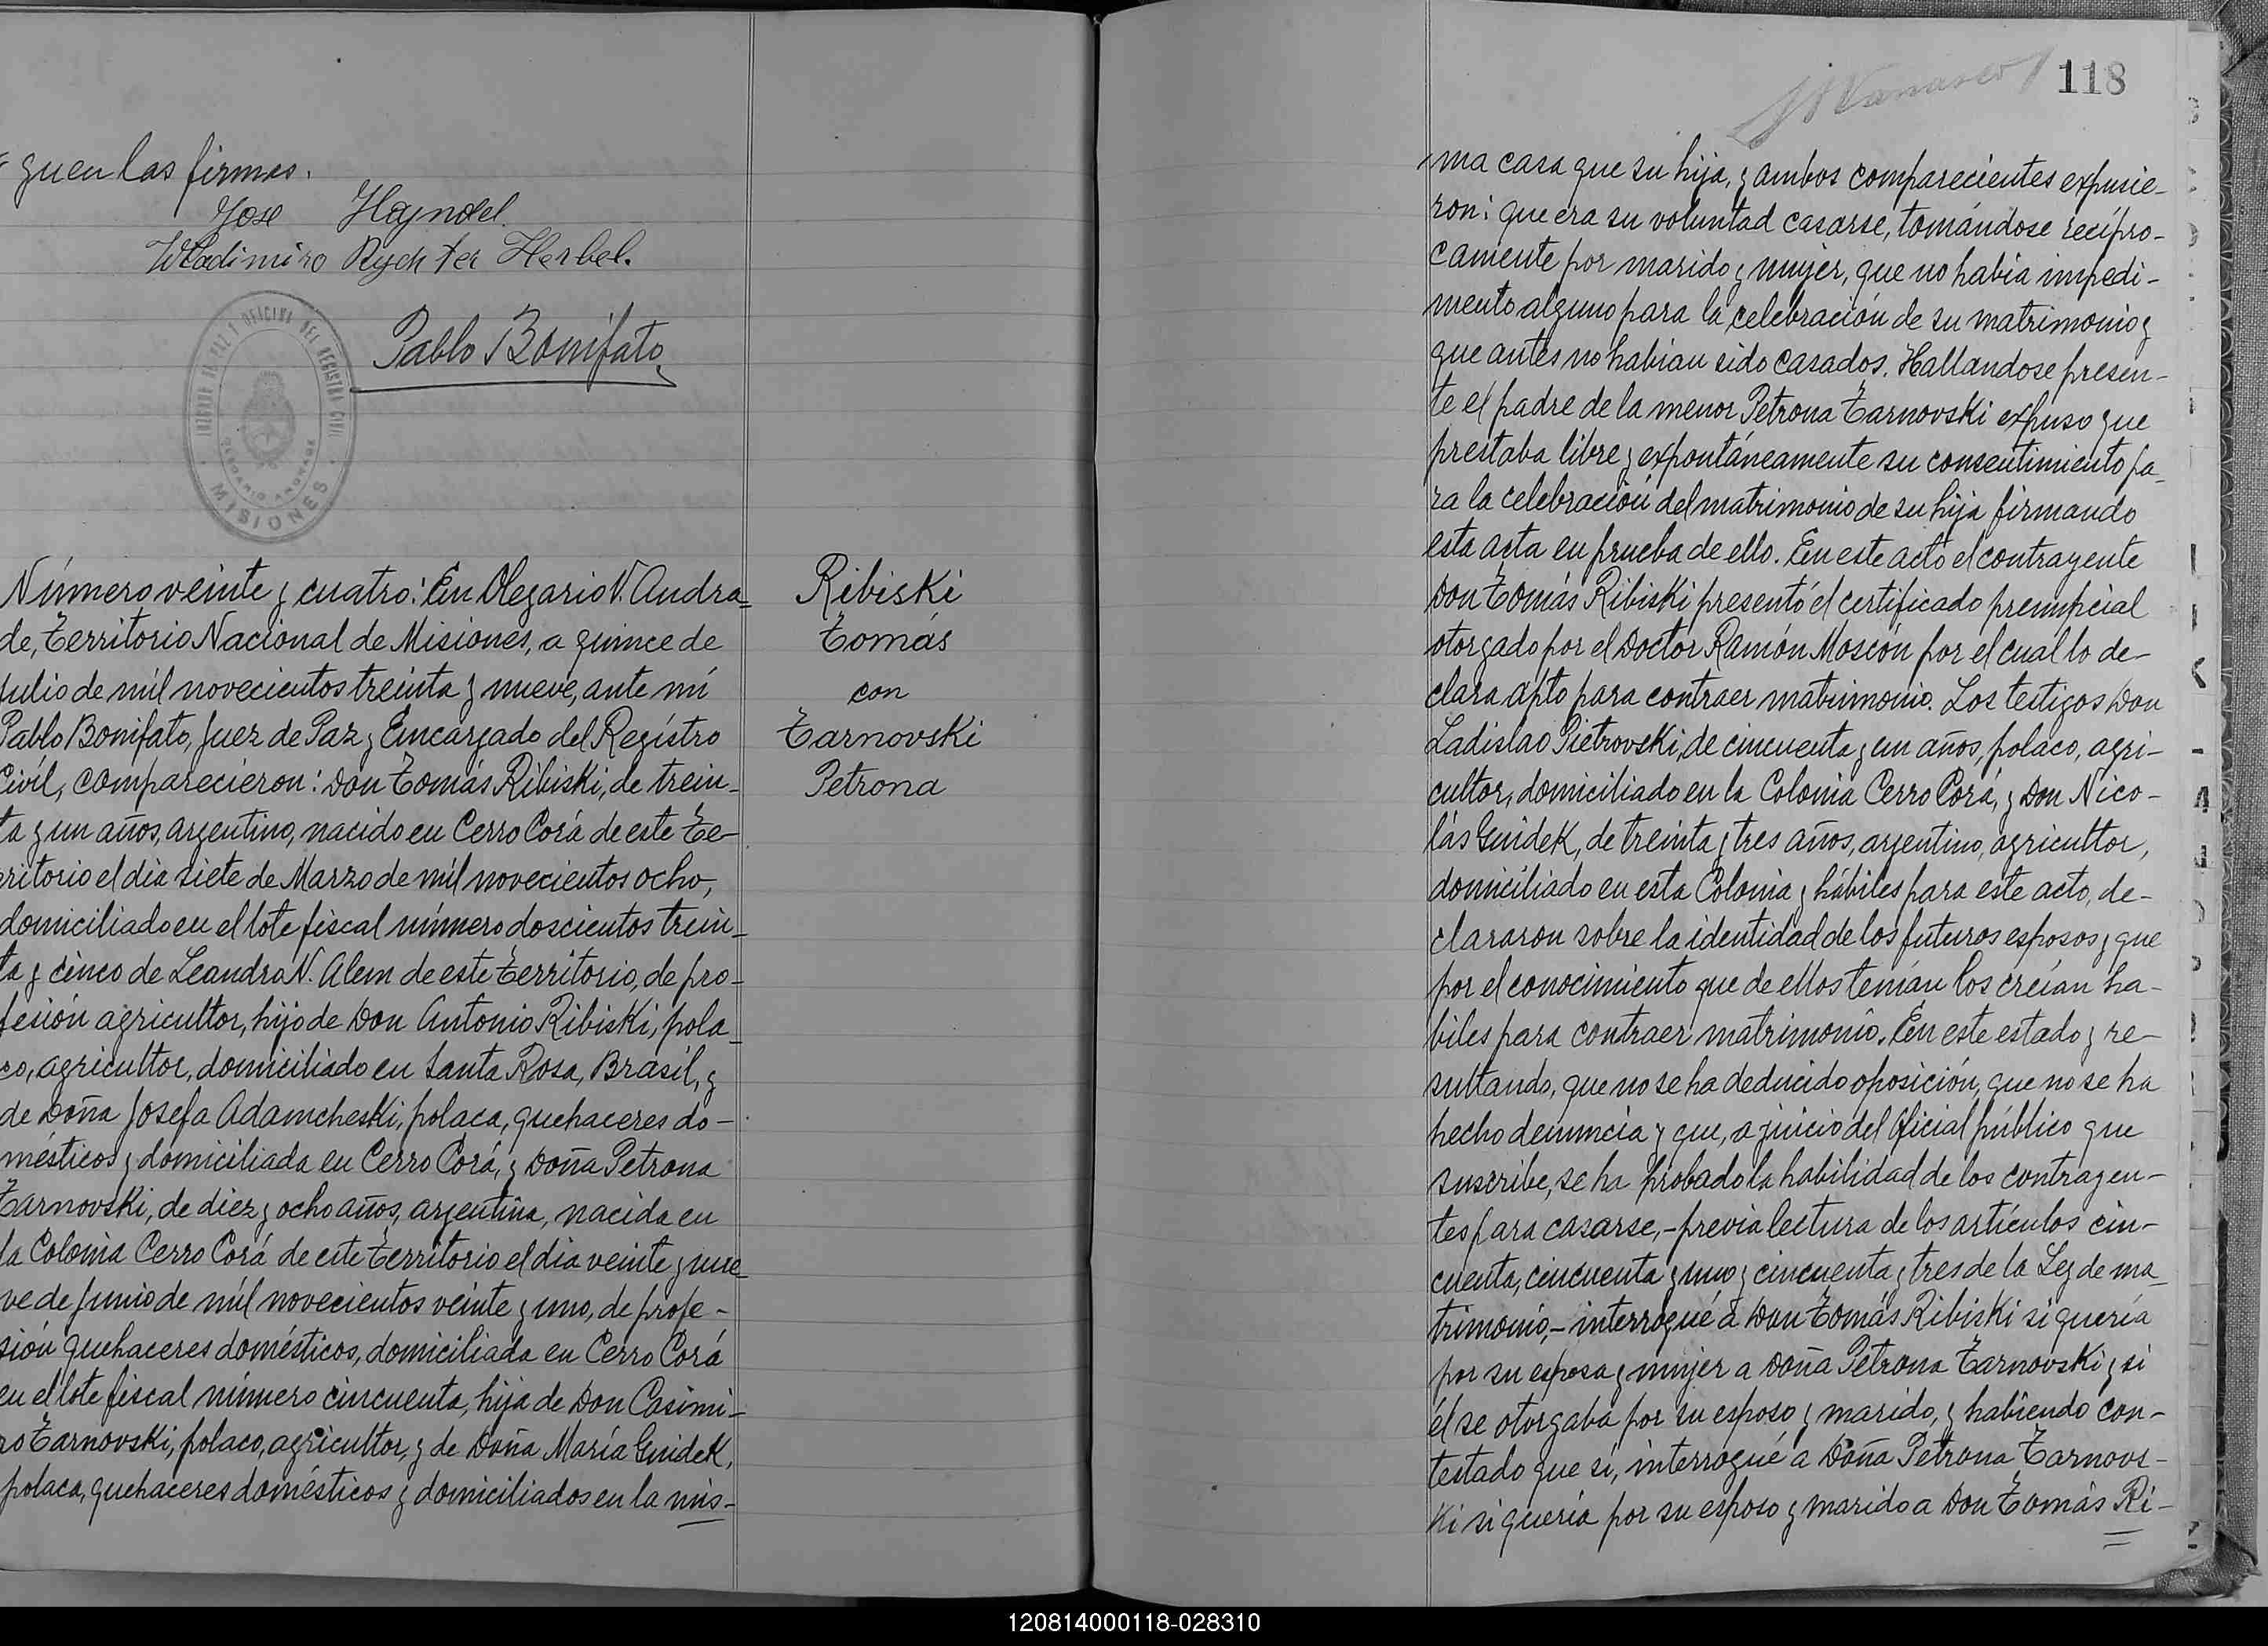 guen las firmas.
Jose Hayndel.
Wladimiro Rychter Herbel.
Pablo Bonifato
JUZGADO DE PAZ Y OFICINA DEL REGISTRO CIVIL
OLEGARIO ANDRADE
MISIONES
Número veinte y cuatro: En Olegario V. Andra-
de, Territorio Nacional de Misiones, a quince de
Julio de mil novecientos treinta y nueve, ante mí
Pablo Bonifato, Juez de Paz y Encargado del Registro
Civil, comparecieron: Don Tomás Ribiski, de trein-
ta y un años, argentino, nacido en Cerro Corá de este Te-
rritorio el día siete de Marzo de mil novecientos ocho,
domiciliado en el lote fiscal número doscientos trein-
ta y cinco de Leandro N. Alem de este Territorio, de pro-
fesión agricultor, hijo de Don Antonio Ribiski, pola-
co, agricultor, domiciliado en Santa Rosa, Brasil, y
de Doña Josefa Adamcheski, polaca, quehaceres do-
mésticos y domiciliada en Cerro Corá, y Doña Petrona
Tarnovski, de diez y ocho años, argentina, nacida en
la Colonia Cerro Corá de este Territorio el día veinte y nue-
ve de Junio de mil novecientos veinte y uno, de profe-
sión quehaceres domésticos, domiciliada en Cerro Corá
en el lote fiscal número cincuenta, hija de Don Casimi-
ro Tarnovski, polaco, agricultor, y de Doña María Guidek,
polaca, quehaceres domésticos y domiciliados en la mis-
Ribiski
Tomás
con
Tarnovski
Petrona
118
ma casa que su hija, y ambos comparecientes expusie-
ron: que era su voluntad casarse, tomándose recípro-
camente por marido y mujer, que no había impedi-
mento alguno para la celebración de su matrimonio y
que antes no habían sido casados. Hallandose presen-
te el padre de la menor Petrona Tarnovski expuso que
prestaba libre y expontáneamente su consentimiento pa-
ra la celebración del matrimonio de su hija firmando
esta acta en prueba de ello. En este acto el contrayente
Don Tomás Ribiski presentó el certificado prenupcial
otorgado por el Doctor Ramón Moscón por el cual lo de-
clara apto para contraer matrimonio. Los testigos Don
Ladislao Pietrovski, de cincuenta y un años, polaco, agri-
cultor, domiciliado en la Colonia Cerro Corá, y Don Nico-
lás Guidek, de treinta y tres años, argentino, agricultor,
domiciliado en esta Colonia y hábiles para este acto, de-
clararon sobre la identidad de los futuros esposos y que
por el conocimiento que de ellos tenían los creían ha-
biles para contraer matrimonio. En este estado y re-
sultando, que no se ha deducido oposición, que no se ha
hecho denuncia y que, a juicio del Oficial público que
suscribe, se ha probado la habilidad de los contrayen-
tes para casarse, - previa lectura de los artículos cin-
cuenta, cincuenta y uno y cincuenta y tres de la Ley de ma-
trimonio, - interrogué a Don Tomás Ribiski si quería
por su esposa y mujer a Doña Petrona Tarnovski y si
él se otorgaba por su esposo y marido, y habiendo con-
testado que sí, interrogué a Doña Petrona Tarnovs-
ki si quería por su esposo y marido a Don Tomás Ri-
120814000118-028310